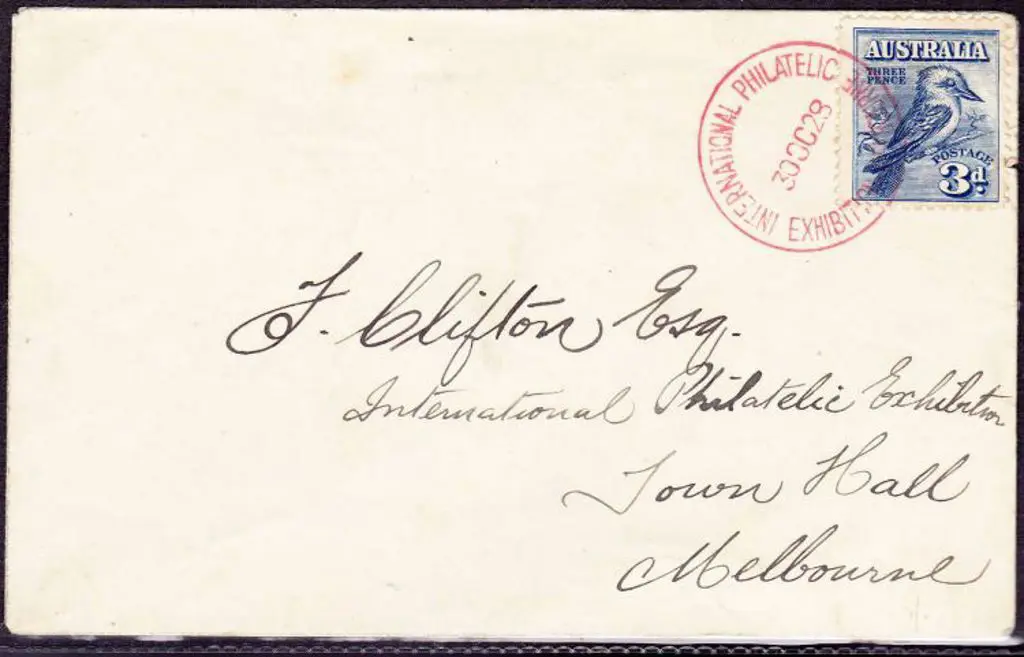 INTERNATIONAL PHILATELIC
EXHIBITION
30OC28
AUSTRALIA
THREE
PENCE
POSTAGE
3d.
F. Clifton Esq.
International Philatelic Exhibition
Town Hall
Melbourne